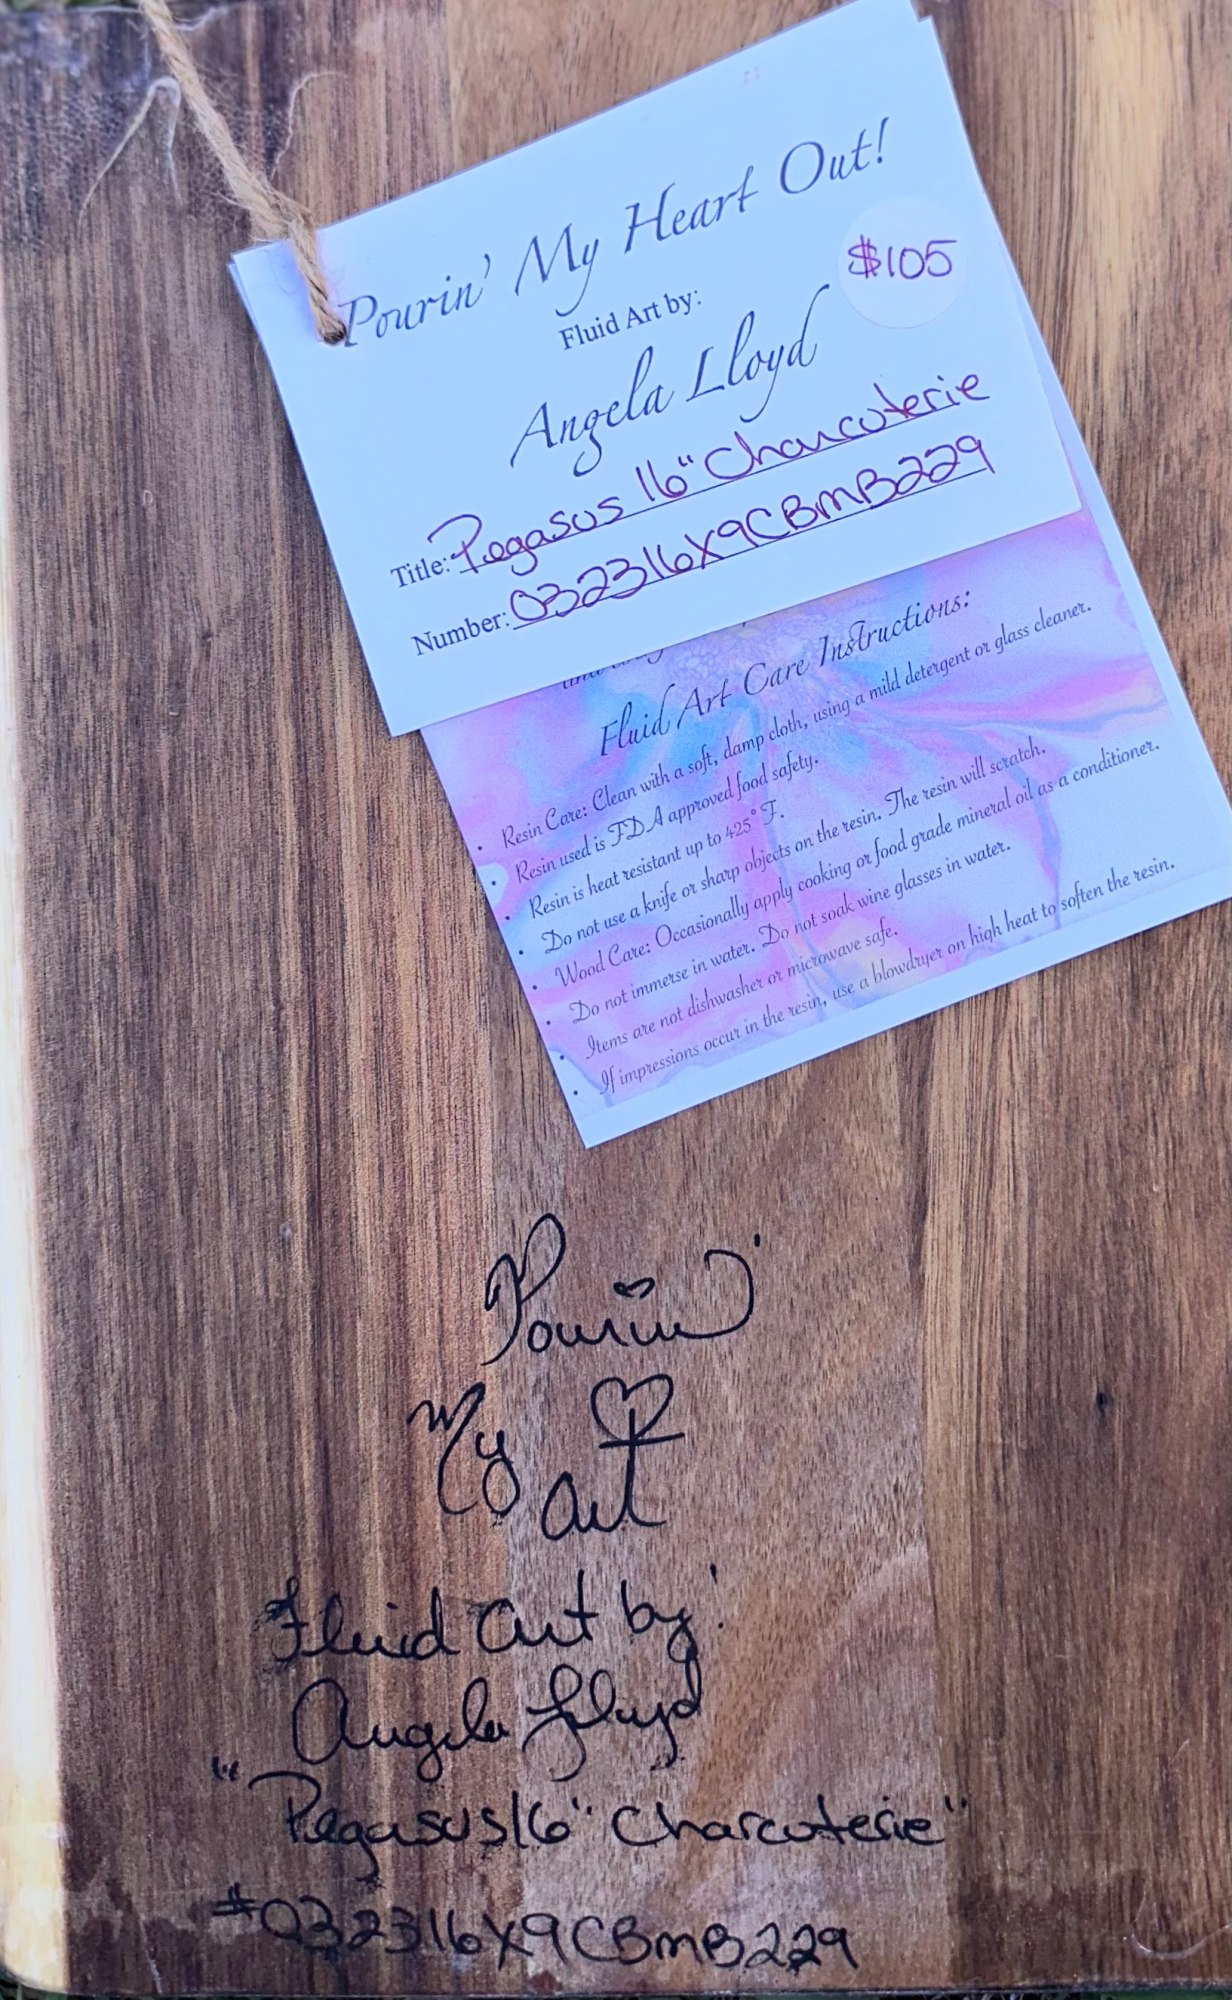 Pourin' My Heart Out!
$105
Fluid Art by:
Angela Lloyd
Title: Pegasus 16" Charcuterie
Number: 032316X9CBMB229
Fluid Art Care Instructions:
• Resin Care: Clean with a soft, damp cloth, using a mild detergent or glass cleaner.
• Resin used is FDA approved food safety.
• Resin is heat resistant up to 425° F.
• Do not use a knife or sharp objects on the resin. The resin will scratch.
• Wood Care: Occasionally apply cooking or food grade mineral oil as a conditioner.
• Do not immerse in water. Do not soak wine glasses in water.
• Items are not dishwasher or microwave safe.
• If impressions occur in the resin, use a blowdryer on high heat to soften the resin.
Pourin'
My
Art
Fluid Art by:
Angela Lloyd
"Pegasus 16" Charcuterie"
#032316X9CBMB229